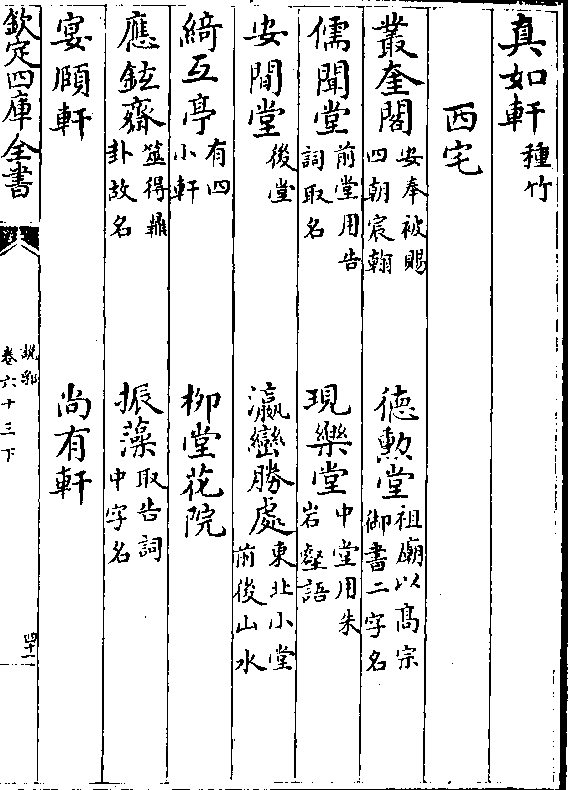 真如軒 種竹
西宅
叢奎閣 安奉被賜四朝宸翰 德勲堂 祖廟以髙宗御書二字名
儒聞堂 前堂用告詞取名 現樂堂 中堂用朱岩壑語
安間堂 後堂 瀛巒勝處 東北小堂前後山水
綺互亭 有四小軒 柳堂花院
應鉉齋 筮得鼎卦故名 振藻 取告詞中字名
宴頤軒 尚有軒
欽定四庫全書
說郛
卷六十三下
四十一